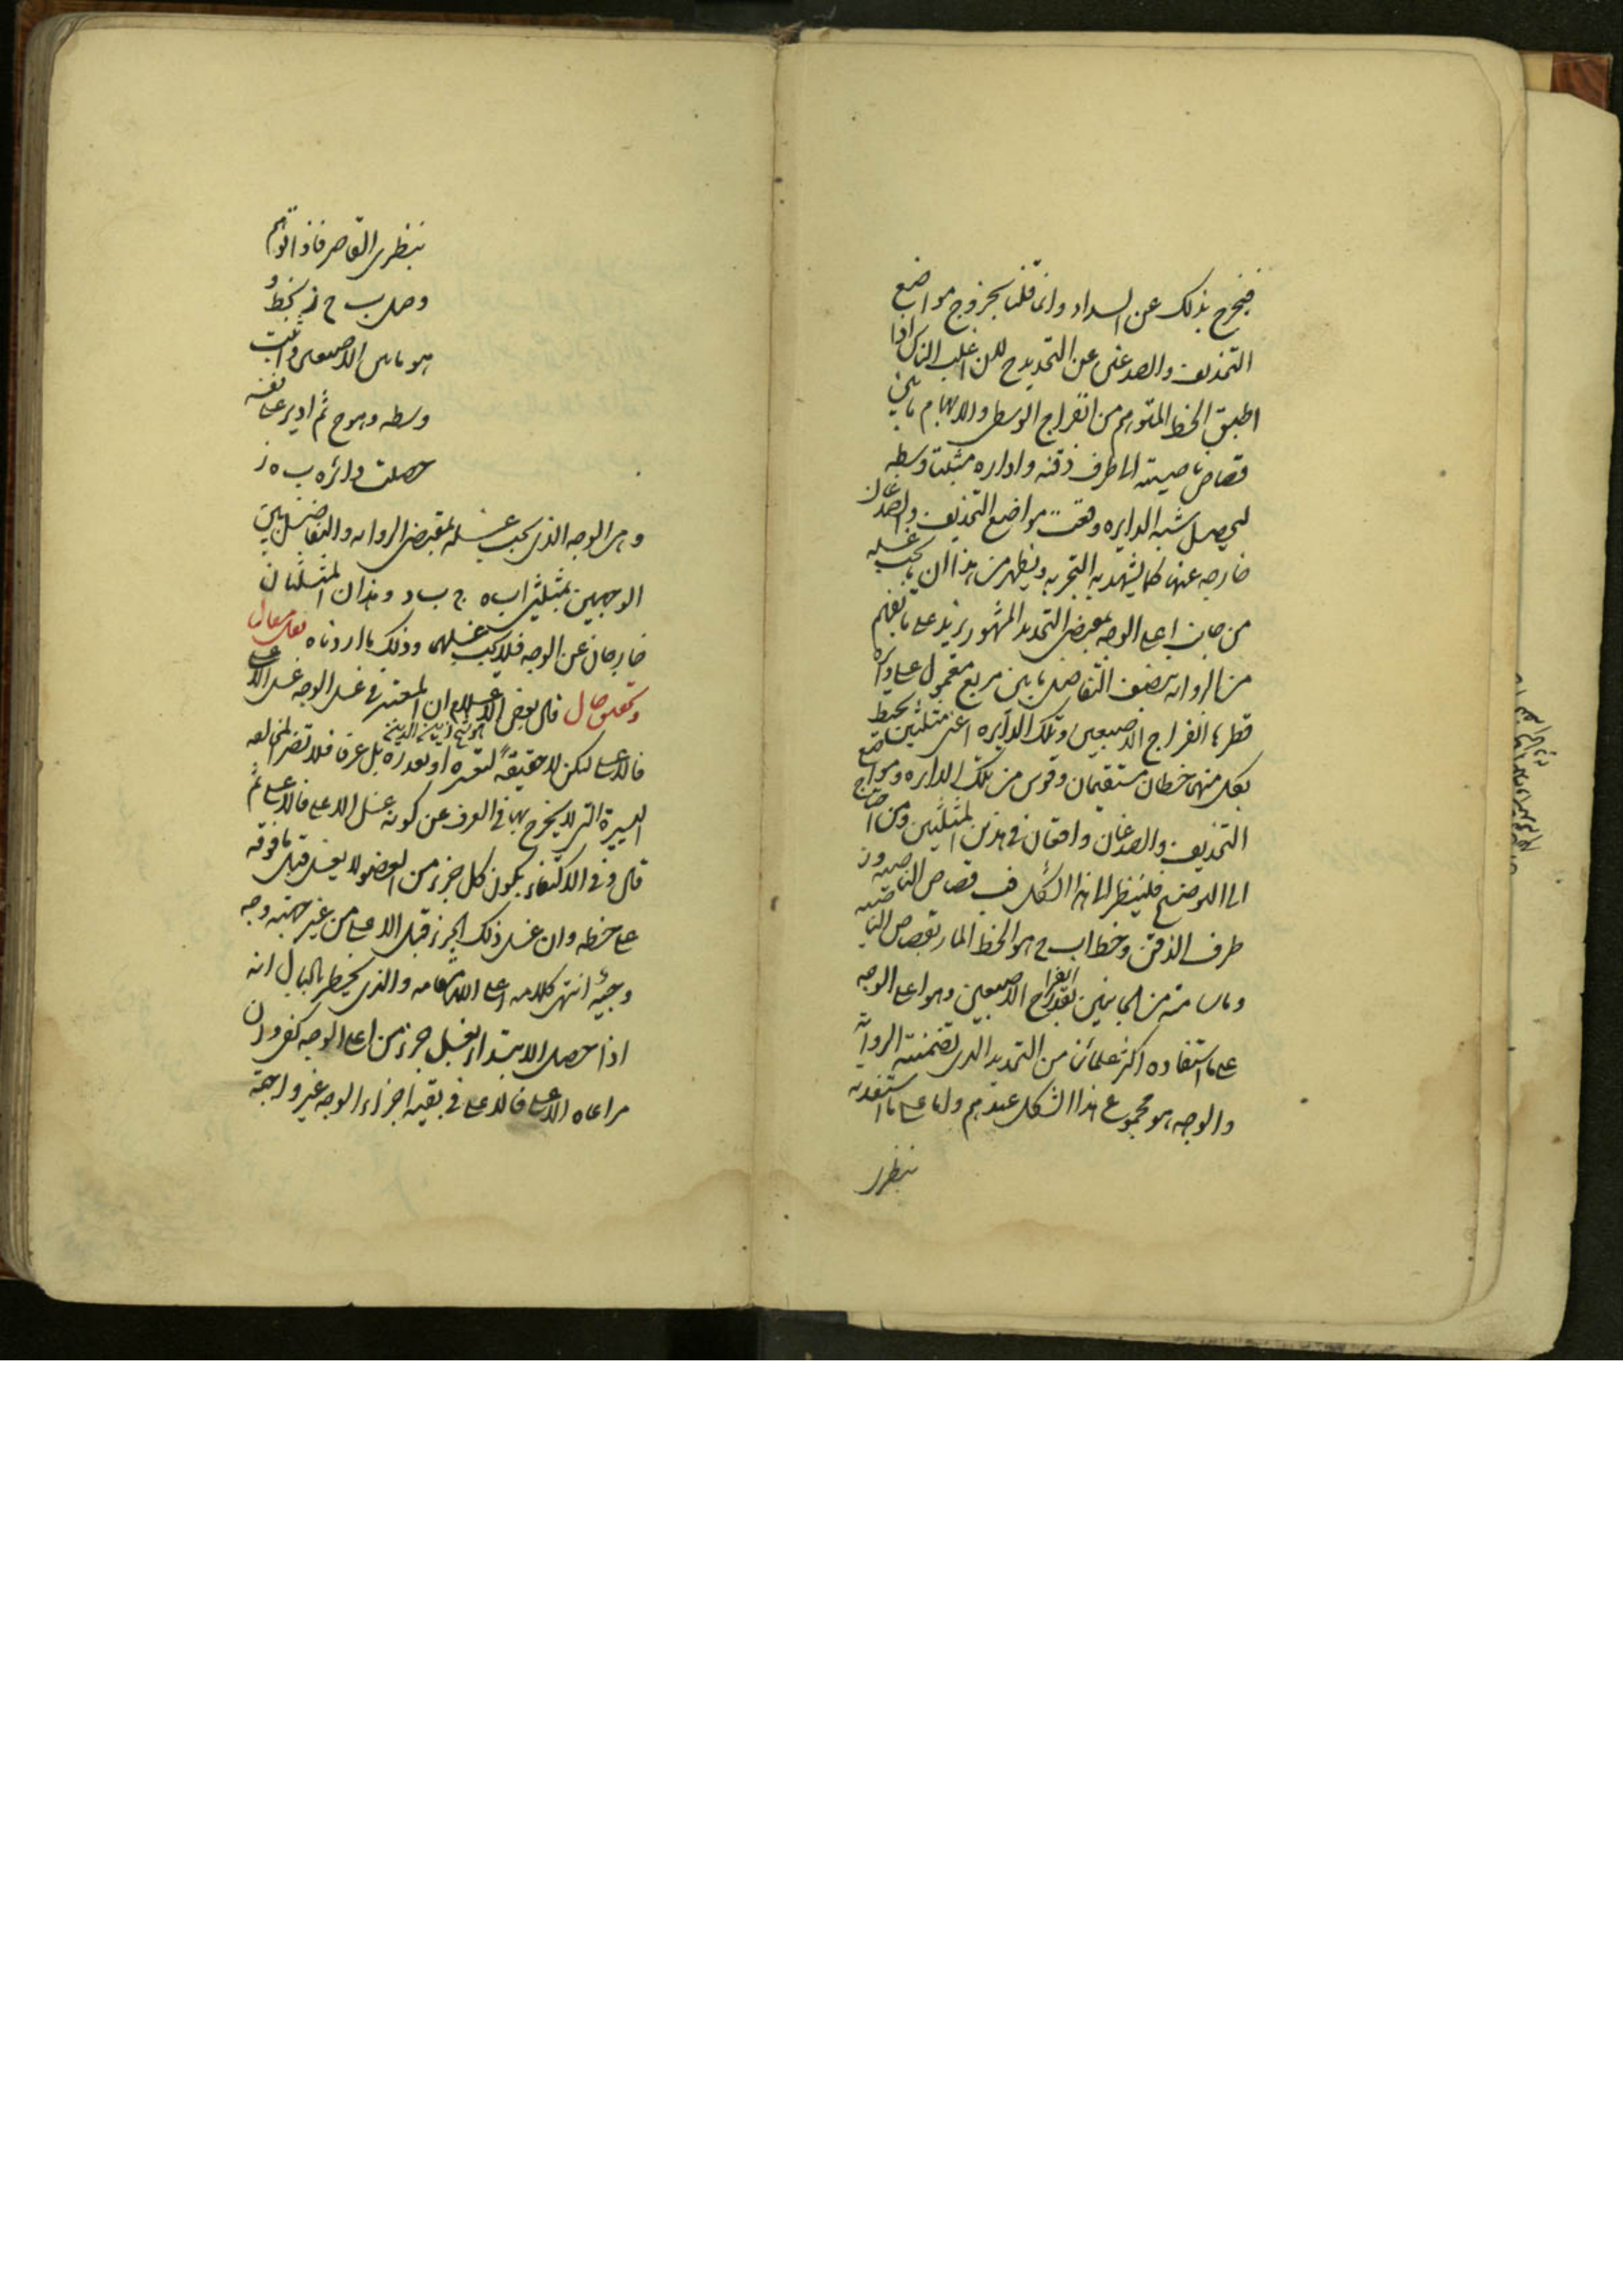 فيخرج بذلك عن السداد وانما قلنا بخروج مواضع
التحذيف والصدغين عن التحديد ح لان اغلب الناس اذا
اطبق الخط المتوهم من انفراج الوسطى والابهام ما بين
قصاص ناصيته الى طرف ذقنه واداره مثبتا وسطه
ليحصل شبه الدايره وقعت مواضع التحذيف والصدغان
خارجه عنها كما يشهد به التجربه ويظهر من هذا ان ما يجب غسله
من جانب اعلى الوجه بمقتضى التحديد المشهور يزيد على ما يفهم
من الروايه بنصف التفاضل ما بين مربع معمول على دائره
قطرها انفراج الاصبعين وتلك الدايره اعنى مثلثين يحيط
بكل منهما خطان مستقيمان وقوس من تلك الدايره ومواضع
التحذيف والصدغان واقعان في هذين المثلثين ومن احتاج
الى التوضيح فلينظر الى هذا الشكل فـ قصاص الناصيه و ز
طرف الذقن وخط اب ح هو الخط المار بقصاص الناصيه
وما سامته من الجانبين بقدر انفراج الاصبعين وهو اعلى الوجه
على ما استفاده اكثر علمائنا من التحديد الذى تضمنته الروايه
والوجه هو مجموع هذا الشكل عندهم واما على ما استفدته
بنظرى
بنظرى القاصر فاذا توهم
وصل ب ح ز بخط و
هو ما بين الاصبعين واثبت
وسطه وهو ح ثم ادير على نفسه
حصلت دائره ب ه ز
وهى الوجه الذى يجب غسله بمقتضى الروايه والتفاضل بين
الوجهين بمثلثى اب ه ج ب د وهذان المثلثان
خارجان عن الوجه فلا يجب غسلهما وذلك ما اردناه نقل مقال
وتحقيق حال قال بعض الاعلام ان المعتبر في غسل الوجه غسل الاعلى
هو الشيخ زين الدين
فالاعلى لكن لا حقيقةً لتعسره او تعذره بل عرفا فلا تضر المخالفه
اليسيرة التى لا يخرج بها في العرف عن كونه غسل الاعلى فالاعلى ثم
قال وفي الاكتفاء بكون كل جزء من العضو لا يغسل قبل ما فوقه
على خطه وان غسل ذلك الجزء قبل الاعلى من غير جهته وجه
وجيه انتهى كلامه اعلى الله مقامه والذى يخطر بالبال انه
اذا حصل الابتداء بغسل جزء من اعلى الوجه كفى وان
مراعاه الاعلى فالاعلى في بقيه اجزاء الوجه غير واجبة